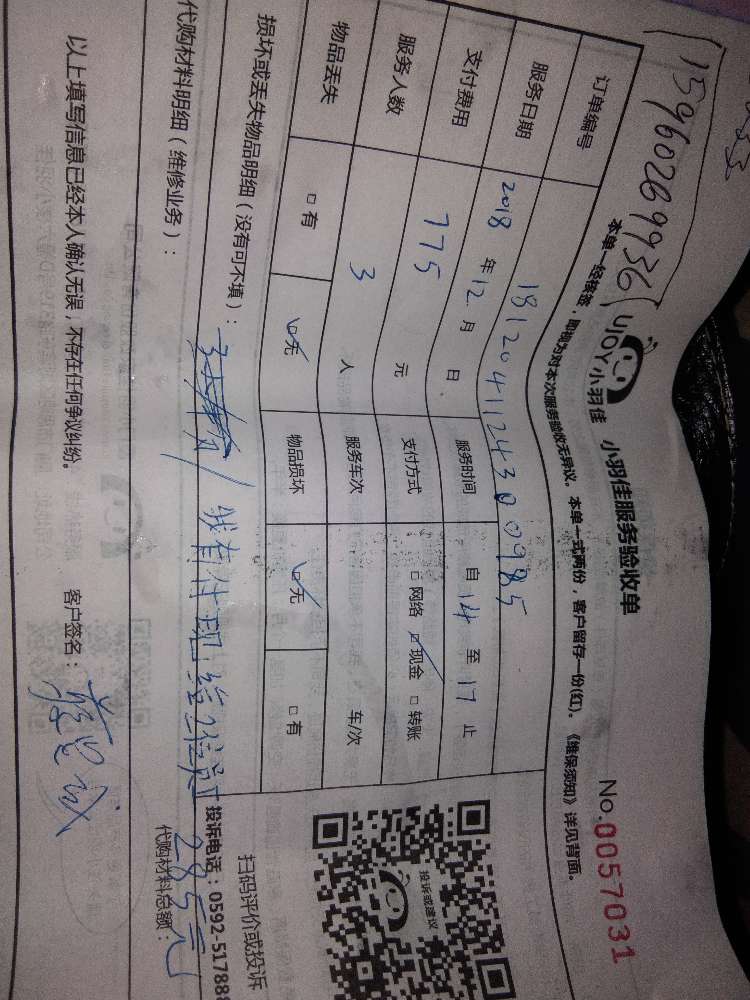 15960269936
UJOY小羽佳 小羽佳服务验收单
No.0057031
本单一经核签，即视为对本次服务验收无异议。本单一式两份，客户留存一份(红)。《维保须知》详见背面。
订单编号 1812041124300985
服务日期 2018 年 12 月 日 服务时间 自 14 至 17 止
支付费用 775 元 支付方式 □ 网络 □ 现金 □ 转账
服务人数 3 人 服务车次 车/次
物品丢失 □ 有 □ 无 物品损坏 □ 无 □ 有
投诉或建议
扫码评价或投诉
投诉电话：0592-517888
损坏或丢失物品明细（没有可不填）：
我有付现给
285元
代购材料明细（维修业务）：
代购材料总额：
以上填写信息已经本人确认无误，不存在任何争议纠纷。 客户签名：